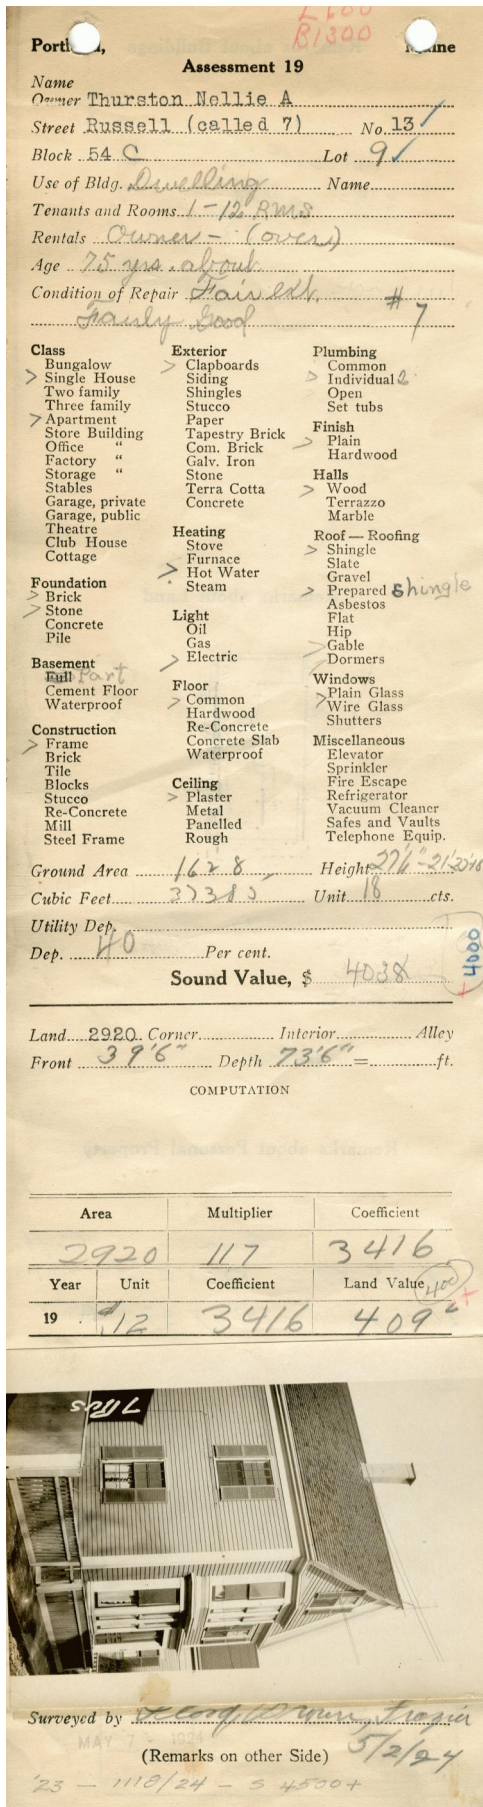 L 600
B1300
Portland, Maine
Assessment 19
Name
Owner Thurston Nellie A
Street Russell (called 7) No. 13 ✓
Block 54 C Lot 9 ✓
Use of Bldg. Dwelling Name
Tenants and Rooms 1-12 RMS
Rentals Owner - (over)
Age 75 yrs. about
Condition of Repair Fair ext. # 7
Fairly Good
Class
Bungalow
> Single House
Two family
Three family
> Apartment
Store Building
Office "
Factory "
Storage "
Stables
Garage, private
Garage, public
Theatre
Club House
Cottage
Foundation
> Brick
> Stone
Concrete
Pile
Basement
Full Part
Cement Floor
Waterproof
Construction
> Frame
Brick
Tile
Blocks
Stucco
Re-Concrete
Mill
Steel Frame
Exterior
> Clapboards
Siding
Shingles
Stucco
Paper
Tapestry Brick
Com. Brick
Galv. Iron
Stone
Terra Cotta
Concrete
Heating
Stove
Furnace
> Hot Water
Steam
Light
Oil
Gas
> Electric
Floor
> Common
Hardwood
Re-Concrete
Concrete Slab
Waterproof
Ceiling
> Plaster
Metal
Panelled
Rough
Plumbing
Common
> Individual 2
Open
Set tubs
Finish
> Plain
Hardwood
Halls
> Wood
Terrazzo
Marble
Roof — Roofing
> Shingle
Slate
Gravel
> Prepared shingle
Asbestos
Flat
Hip
> Gable
Dormers
Windows
> Plain Glass
Wire Glass
Shutters
Miscellaneous
Elevator
Sprinkler
Fire Escape
Refrigerator
Vacuum Cleaner
Safes and Vaults
Telephone Equip.
Ground Area 1628 Height
Cubic Feet Unit 18 cts.
Utility Dep.
Dep. 40 Per cent.
+ 4000
Sound Value, $ 4038
Land 2920 Corner Interior Alley
Front 39'6" Depth 73'6" = ft.
COMPUTATION
Area Multiplier Coefficient
2920 117 3416
Year Unit Coefficient Land Value 400 +
19 $.12 3416 409
7 RUS
Surveyed by Frazier
MAY 7 - 1924
5/2/24
(Remarks on other Side)
'23 - 1118/24 - S 4500+